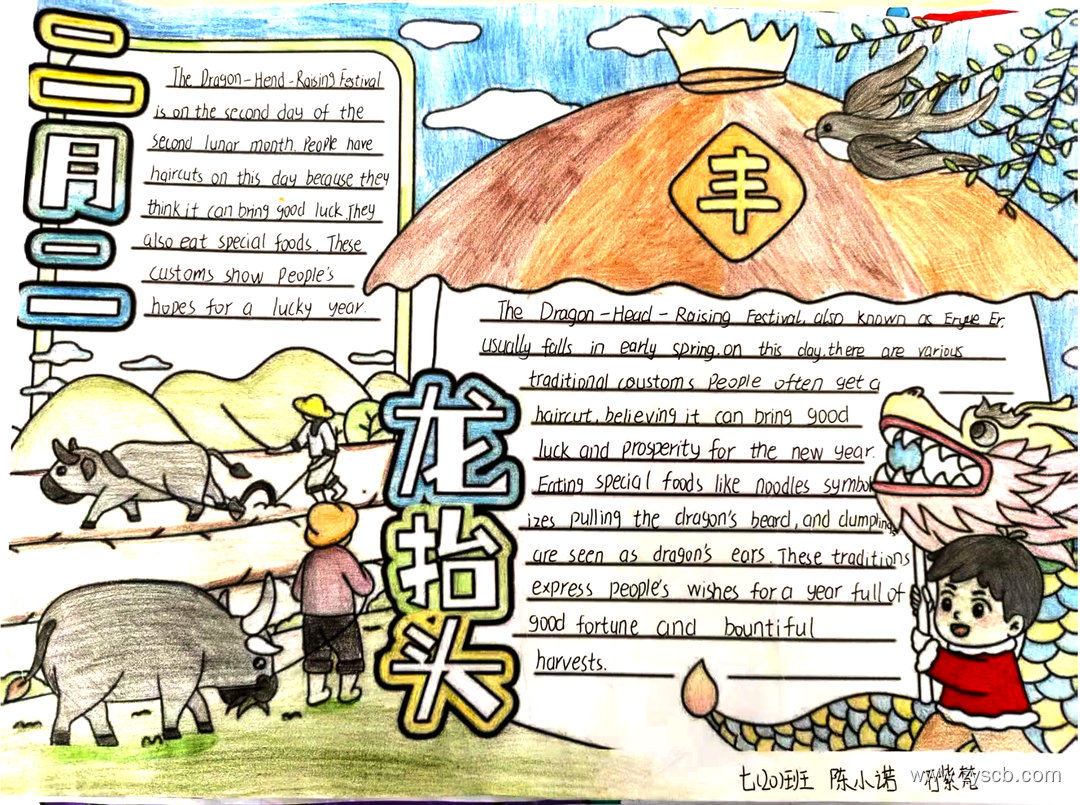 二月二
The Dragon-Hend-Raising Festival
is on the second day of the
second lunar month. People have
haircuts on this day because they
think it can bring good luck. They
also eat special foods. These
customs show people's
hopes for a lucky year.
丰
龙抬头
The Dragon-Head-Raising Festival, also known as Eryue Er,
usually falls in early spring. on this day, there are various
traditional coustoms people often get a
haircut, believing it can bring good
luck and prosperity for the new year.
Eating special foods like noodles symbol
izes pulling the dragon's beard, and dumplings
are seen as dragon's ears. These traditions
express people's wishes for a year full of
good fortune and bountiful
harvests.
七(20)班 陈小诺
yscb.com